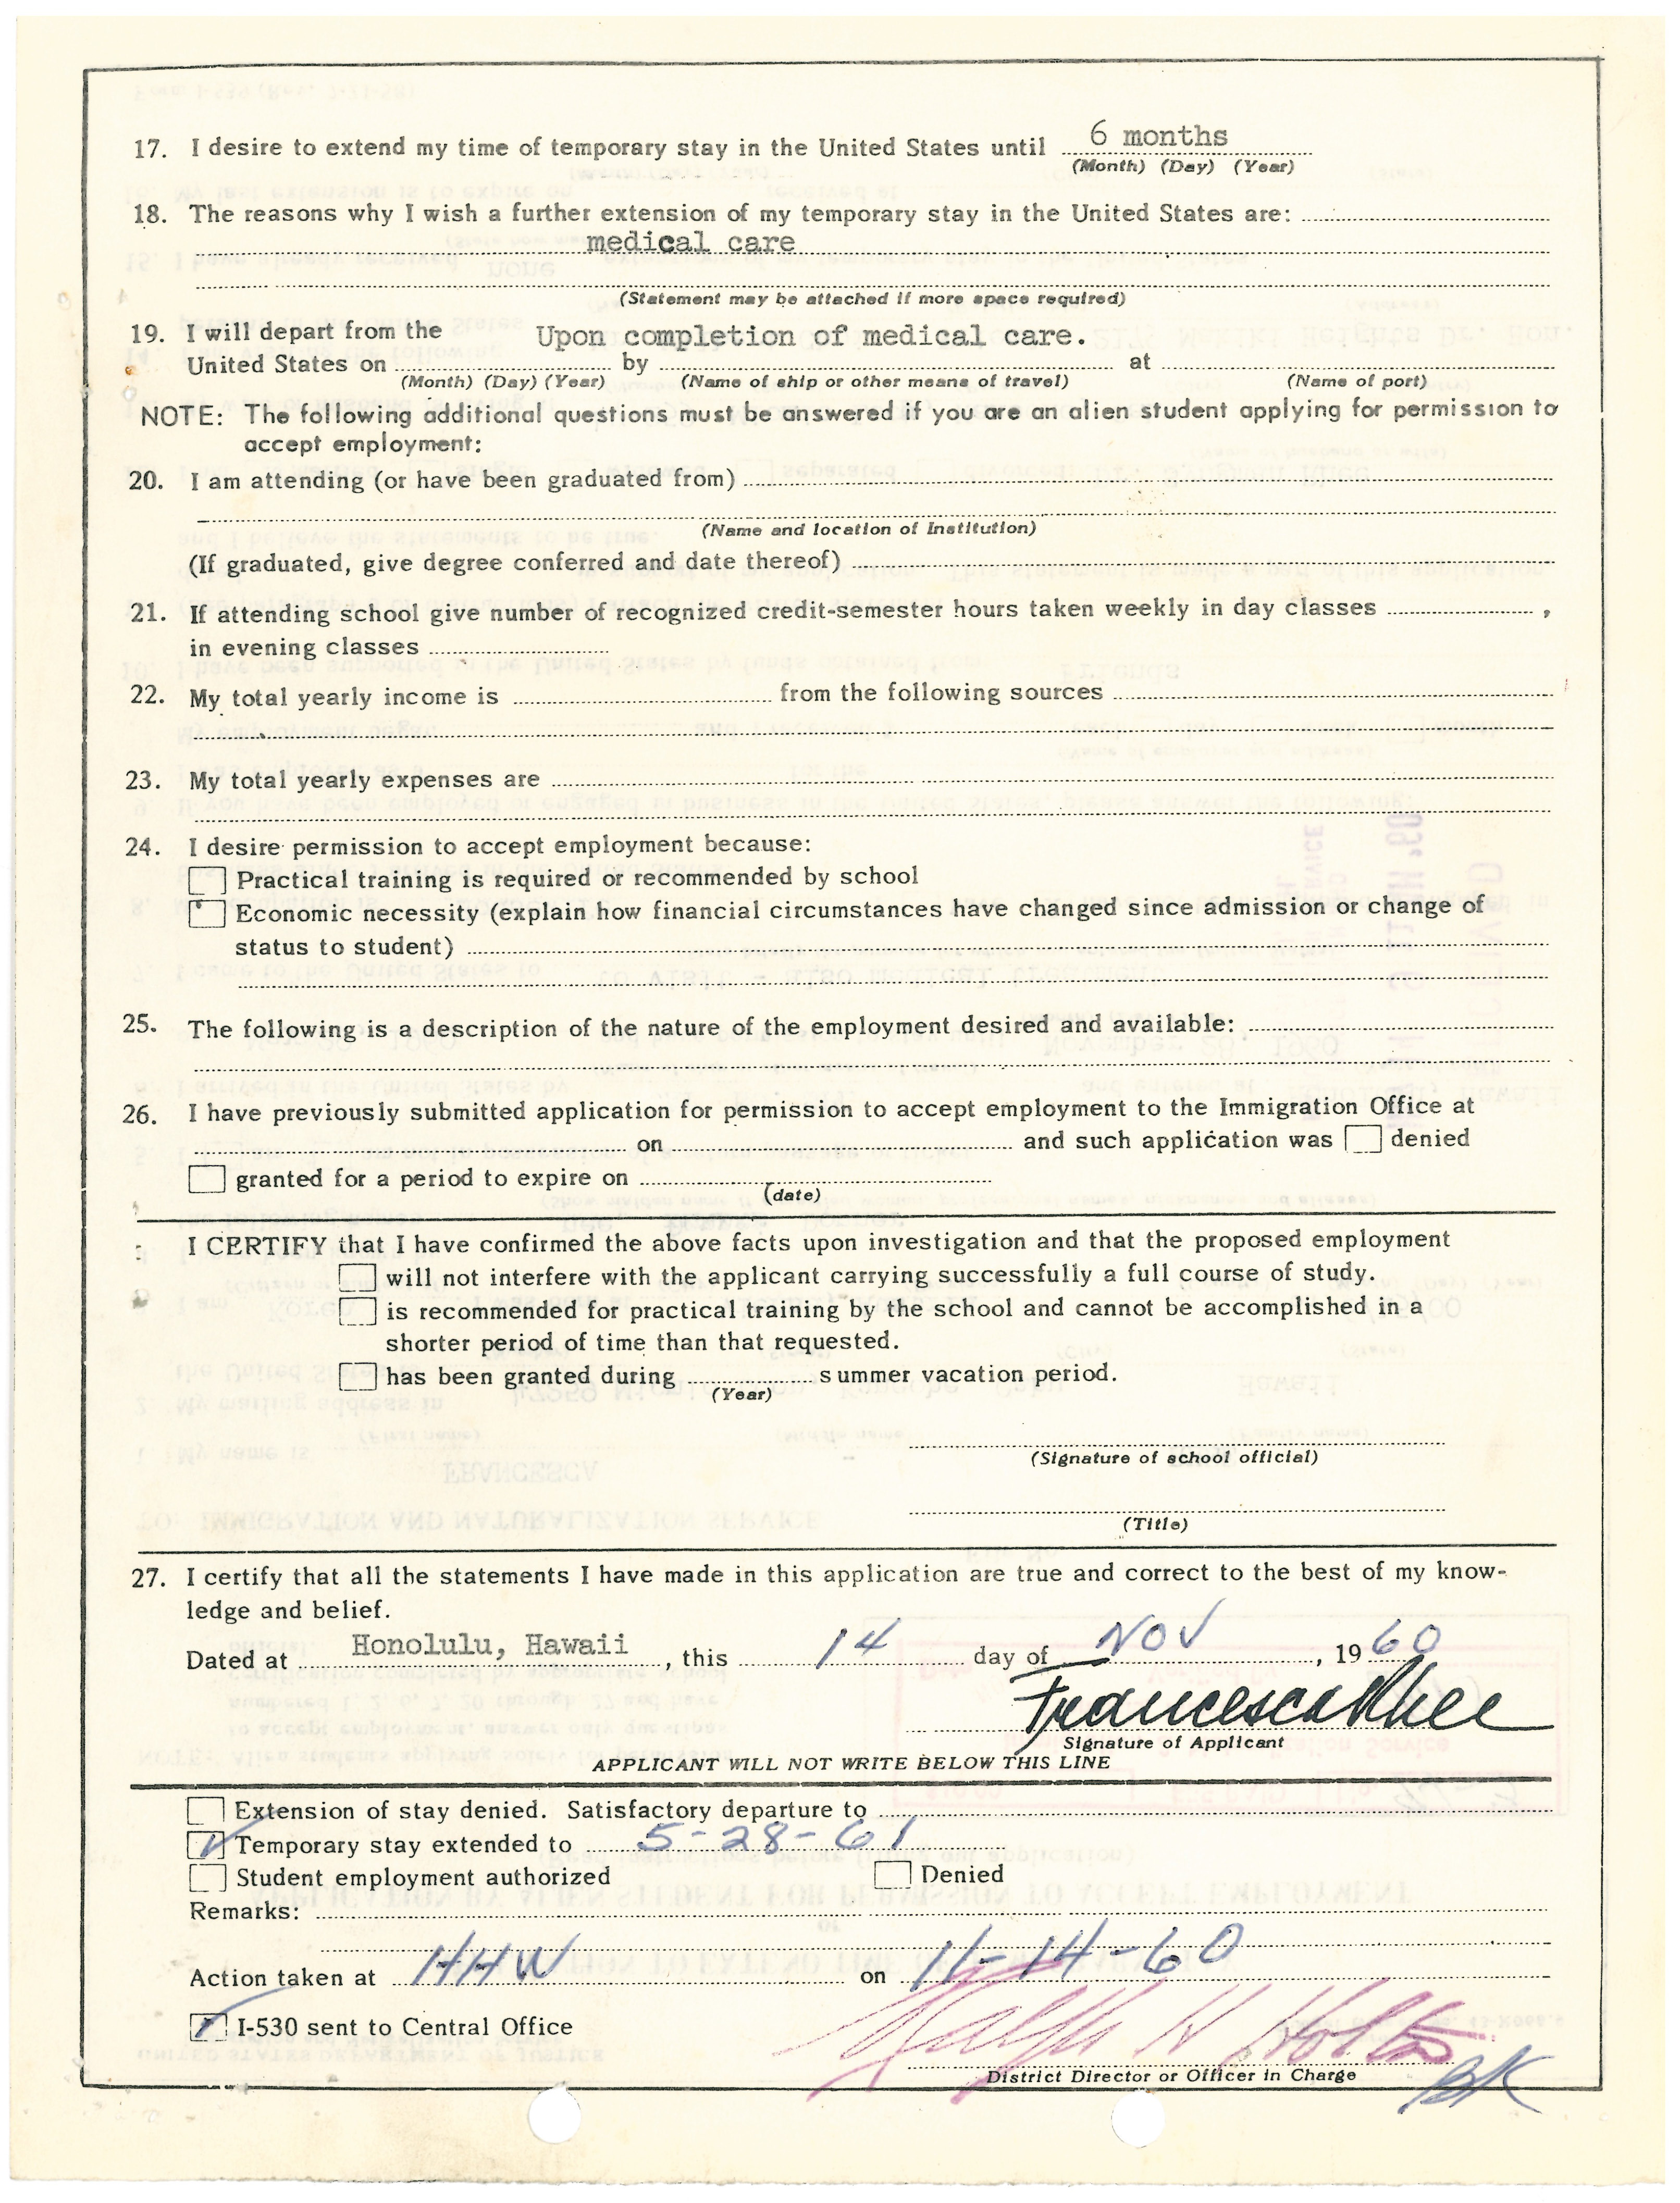 17. I desire to extend my time of temporary stay in the United States until 6 months
(Month) (Day) (Year)
18. The reasons why I wish a further extension of my temporary stay in the United States are:
medical care
(Statement may be attached if more space required)
19. I will depart from the Upon completion of medical care.
United States on by at
(Month) (Day) (Year) (Name of ship or other means of travel) (Name of port)
NOTE: The following additional questions must be answered if you are an alien student applying for permission to
accept employment:
20. I am attending (or have been graduated from)
(Name and location of Institution)
(If graduated, give degree conferred and date thereof)
21. If attending school give number of recognized credit-semester hours taken weekly in day classes ,
in evening classes
22. My total yearly income is from the following sources
23. My total yearly expenses are
24. I desire permission to accept employment because:
Practical training is required or recommended by school
Economic necessity (explain how financial circumstances have changed since admission or change of
status to student)
25. The following is a description of the nature of the employment desired and available:
26. I have previously submitted application for permission to accept employment to the Immigration Office at
on and such application was denied
granted for a period to expire on
(date)
I CERTIFY that I have confirmed the above facts upon investigation and that the proposed employment
will not interfere with the applicant carrying successfully a full course of study.
is recommended for practical training by the school and cannot be accomplished in a
shorter period of time than that requested.
has been granted during summer vacation period.
(Year)
(Signature of school official)
(Title)
27. I certify that all the statements I have made in this application are true and correct to the best of my know-
ledge and belief.
Dated at Honolulu, Hawaii , this 14 day of NOV , 19 60
Francesca Rhee
Signature of Applicant
APPLICANT WILL NOT WRITE BELOW THIS LINE
Extension of stay denied. Satisfactory departure to
Temporary stay extended to 5-28-61
Student employment authorized Denied
Remarks:
Action taken at HHW on 11-14-60
I-530 sent to Central Office
Ralph H Holton
District Director or Officer in Charge
BK